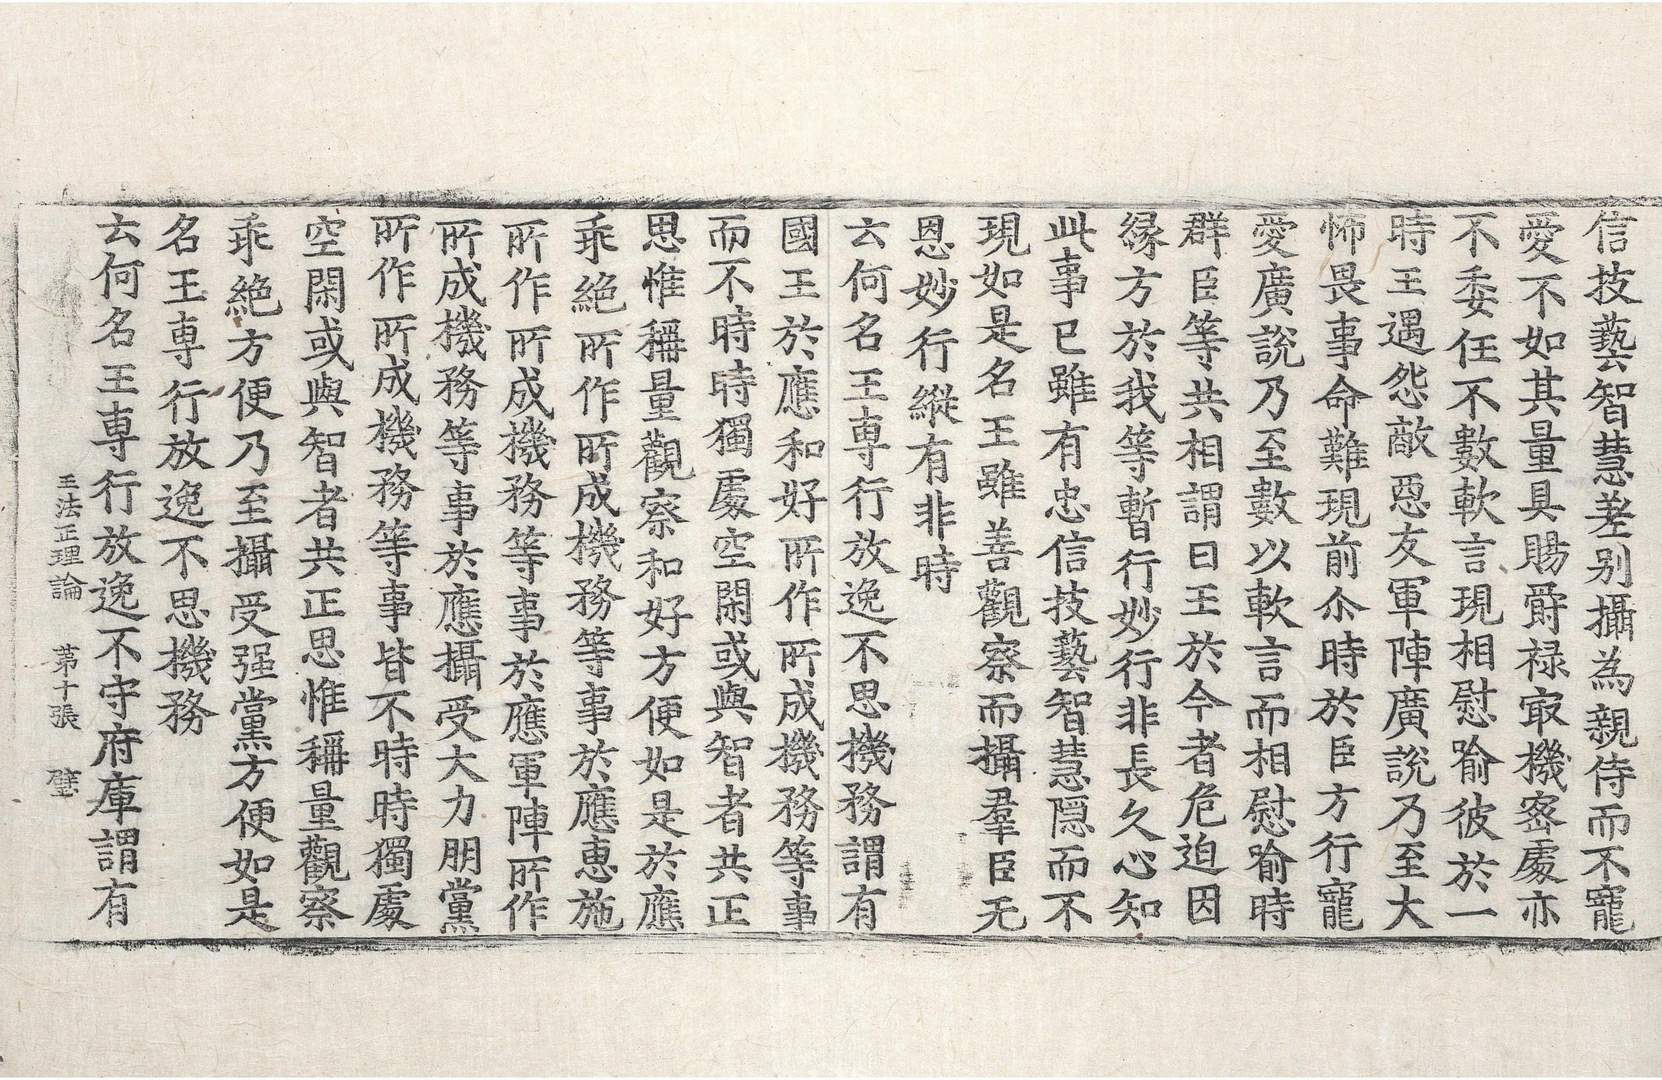 信技藝智慧差别攝為親侍而不寵
愛不如其量具賜爵禄㝡機宻處亦
不委任不數軟言現相慰喻彼於一
時王遇怨敵惡友軍陣廣說乃至大
怖畏事命難現前尒時於臣方行寵
愛廣說乃至數以軟言而相慰喻時
群臣等共相謂曰王於今者危迫因
縁方於我等暫行妙行非長久心知
此事已雖有忠信技藝智慧隱而不
現如是名王雖善觀察而攝羣臣无
恩妙行縱有非時
云何名王専行放逸不思機務謂有
國王於應和好所作所成機務等事
而不時時獨處空閑或與智者共正
思惟稱量觀察和好方便如是於應
乖絶所作所成機務等事於應惠施
所作所成機務等事於應軍陣所作
所成機務等事於應攝受大力朋黨
所作所成機務等事皆不時時獨處
空閑或與智者共正思惟稱量觀察
乖絶方便乃至攝受强黨方便如是
名王専行放逸不思機務
云何名王専行放逸不守府庫謂有
王法正理論 第十張 璧